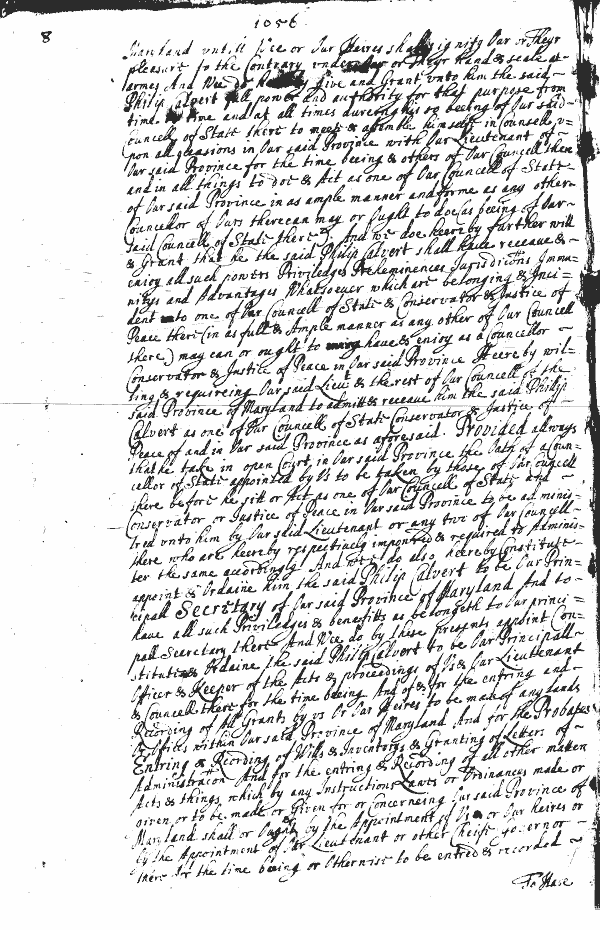 1656
8
Maryland untill wee or Our Heires shall signify Our or Theyr
pleasure to the Contrary under Our or Theyr Hand & seale at
armes And Wee do Hereby Give and Grant unto him the said
Philip Calvert full power and authority for that purpose from
time to time and at all times dureing his so beeing of Our said
Councell of State there to meete & assemble himselfe in Counsell u=
pon all occasions in Our said Province with Our Lieutenant of
Our said Province for the time beeing & others of Our Councell then
and in all things to doe & Act as one of Our Councell of State
of Our said Province in as ample manner and forme as any other
Councellor of Ours there can may or Ought to doe as being of Our
said Councell of State there And we doe hereby further will
& Grant that he the said Philip Calvert shall have receave &
enjoy all such powers Priviledges Preheminences Jurisdictions Immu=
nitys and Advantages Whatsoever which are belonging & Inci=
dent unto one of Our Councell of State & Conservator & Justice of
Peace there (in as full & Ample manner as any other of Our Councell
there) may can or ought to have & enjoy as a Councellor
Conservator & Justice of Peace in Our said Province Hereby wil=
ling & requireing Our said Lieu & the rest of Our Councell of the
said Province of Maryland to admitt & receave him the said Philip
Calvert as one of Our Councell of State Conservator & Justice of
Peace of and in Our said Province as aforesaid. Provided allways
that he take in open Court in Our said Province the Oath of a Coun=
cellor of State appointed by Us to be taken by those of Our Councell
there before he sitt or Act as one of Our Councell of State and
Conservator or Justice of Peace in Our said Province to be adminis=
tred unto him by Our said Lieutenant or any two of Our Councell
there who are hereby respectively impowred & required to Adminis=
ter the same accordingly And wee do also hereby Constitute
appoint & Ordaine him the said Philip Calvert to be Our Prin=
cipall Secretary of Our said Province of Maryland And to
have all such Priviledges & benefitts as belongeth to Our princi=
pall Secretary there And Wee do by these presents appoint Con=
stitute & Ordaine the said Philip Calvert to be Our Principall
Officer & Keeper of the Acts & proceedings of Us & Our Lieutenant
& Councell there for the time beeing And of & for the entring and
Recording of All Grants by us Or Our Heires to be made of any lands
Or Offices within Our said Province of Maryland And for the Probates
Entring & Recording of Wills & Inventorys & Granting of Letters of
Administracon And for the entring & Recording of all other matters
Acts & things which by any Instructions Laws or Ordinances made or
given or to be made or Given for or Concerneing Our said Province of
Maryland shall or Ought by the Appointment of Us or Our Heires or
by the Appointment of Our Lieutenant or other Cheife Governor
there for the time being or Otherwise to be entred & recorded
To Have